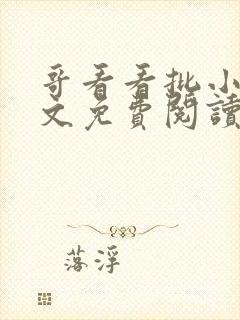 哥看看批小
文免費閱讀
落浮